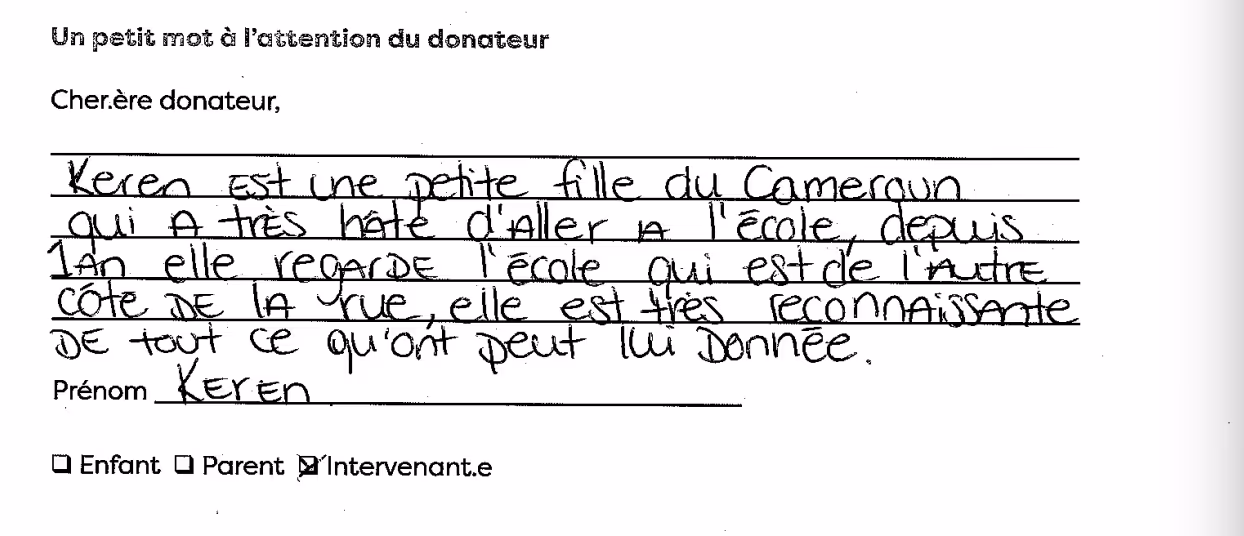 Un petit mot à l'attention du donateur
Cher.ère donateur,
Keren EST une petite fille du Cameroun
qui A très hâte d'Aller A l'école, depuis
1An elle regArDE l'école qui est de l'AutrE
côte DE lA rue, elle est très reconnAissAnte
DE tout ce qu'ont peut lui Donnée.
Prénom KErEn
☐ Enfant ☐ Parent ☑ Intervenant.e